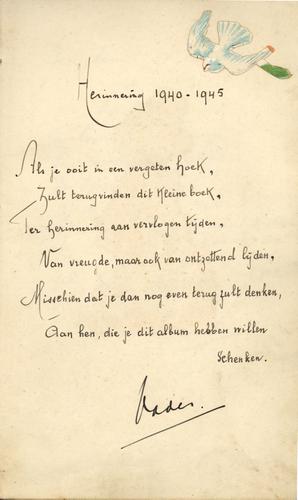 Herinnering 1940-1945
Als je ooit in een vergeten hoek,
Zult terugvinden dit kleine boek,
Ter herinnering aan vervlogen tijden,
Van vreugde, maar ook van ontzettend lijden,
Misschien dat je dan nog even terug zult denken,
Aan hen, die je dit album hebben willen
Schenken.
Vader.